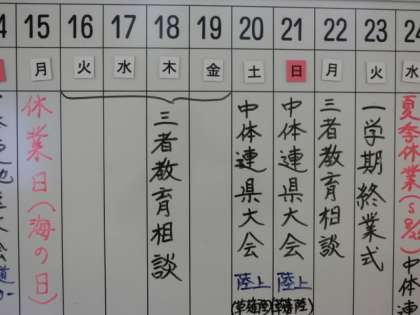 15 16 17 18 19 20 21 22 23 24
月 火 水 木 金 土 日 月 火 水
休業日(海の日)
三者教育相談
中体連県大会
陸上
中体連県大会
陸上
三者教育相談
一学期終業式
夏季休業
中体連